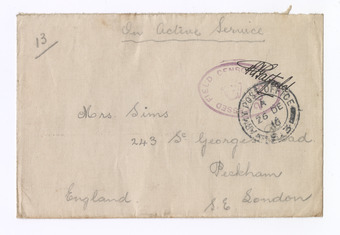 On Active Service
13
PASSED FIELD CENSOR
ARMY POST OFFICE
A
26 DE
16
Mrs Sims
243 St Georges Road
Peckham
England. S.E. London